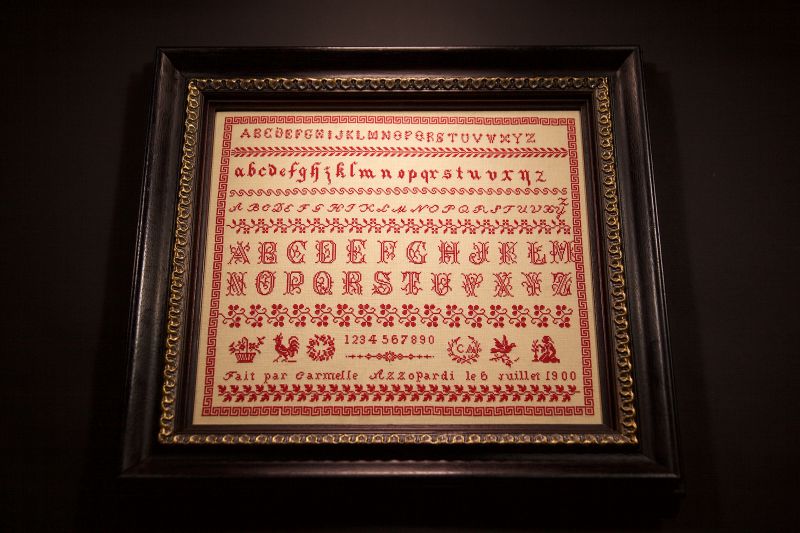 ABCDEFGHIJKLMNOPQRSTUVWXYZ
abcdefghzklmnopqrstuvxyz
ABCDEFGHIKLMNOPQRSTUVXYZ
ABCDEFGHJKLM
NOPQRSTUVXYZ
1234567890
C.A
Fait par Carmelle Azzopardi le 6 juillet 1900